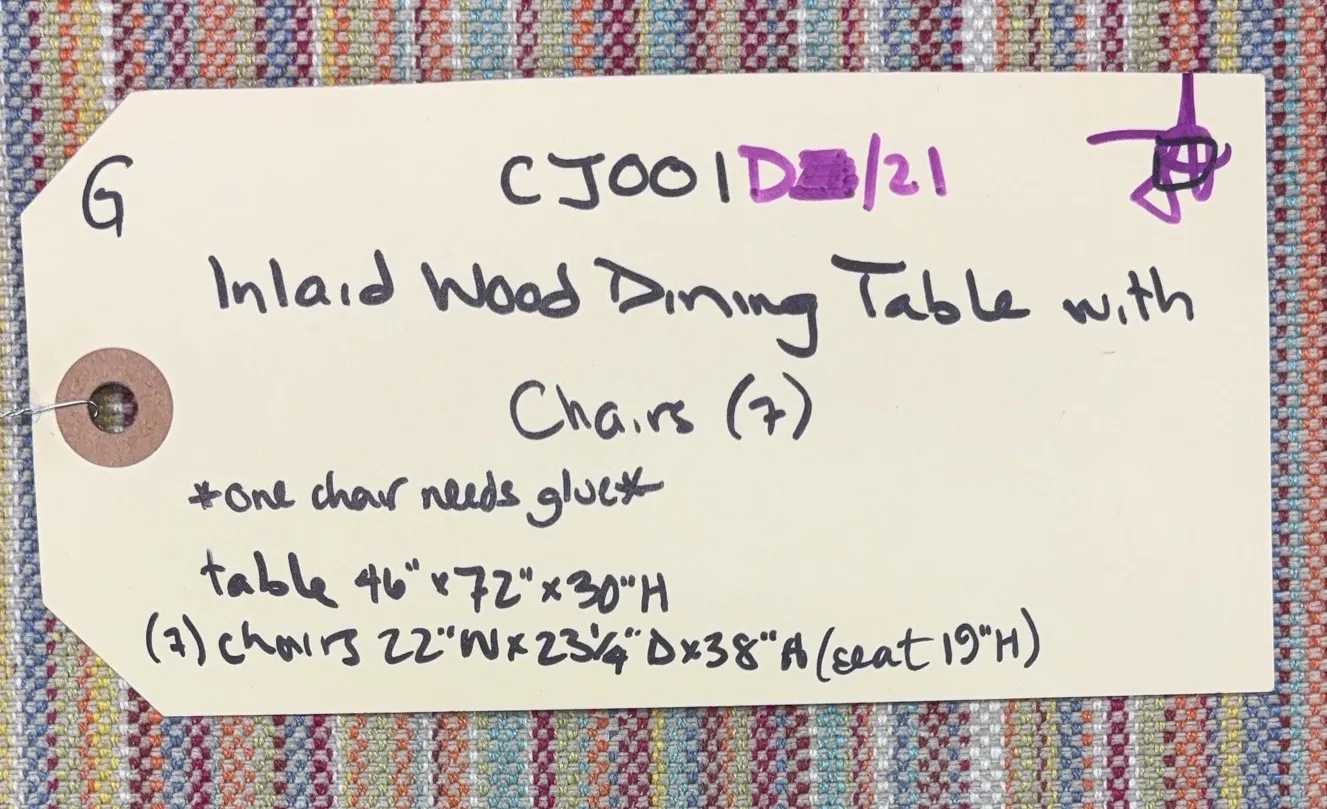 G
CJ001D /21
Inlaid Wood Dining Table with
Chairs (7)
*one chair needs glue*
table 46" x 72" x 30"H
(7) chairs 22"W x 23¼" D x 38"H (seat 19"H)